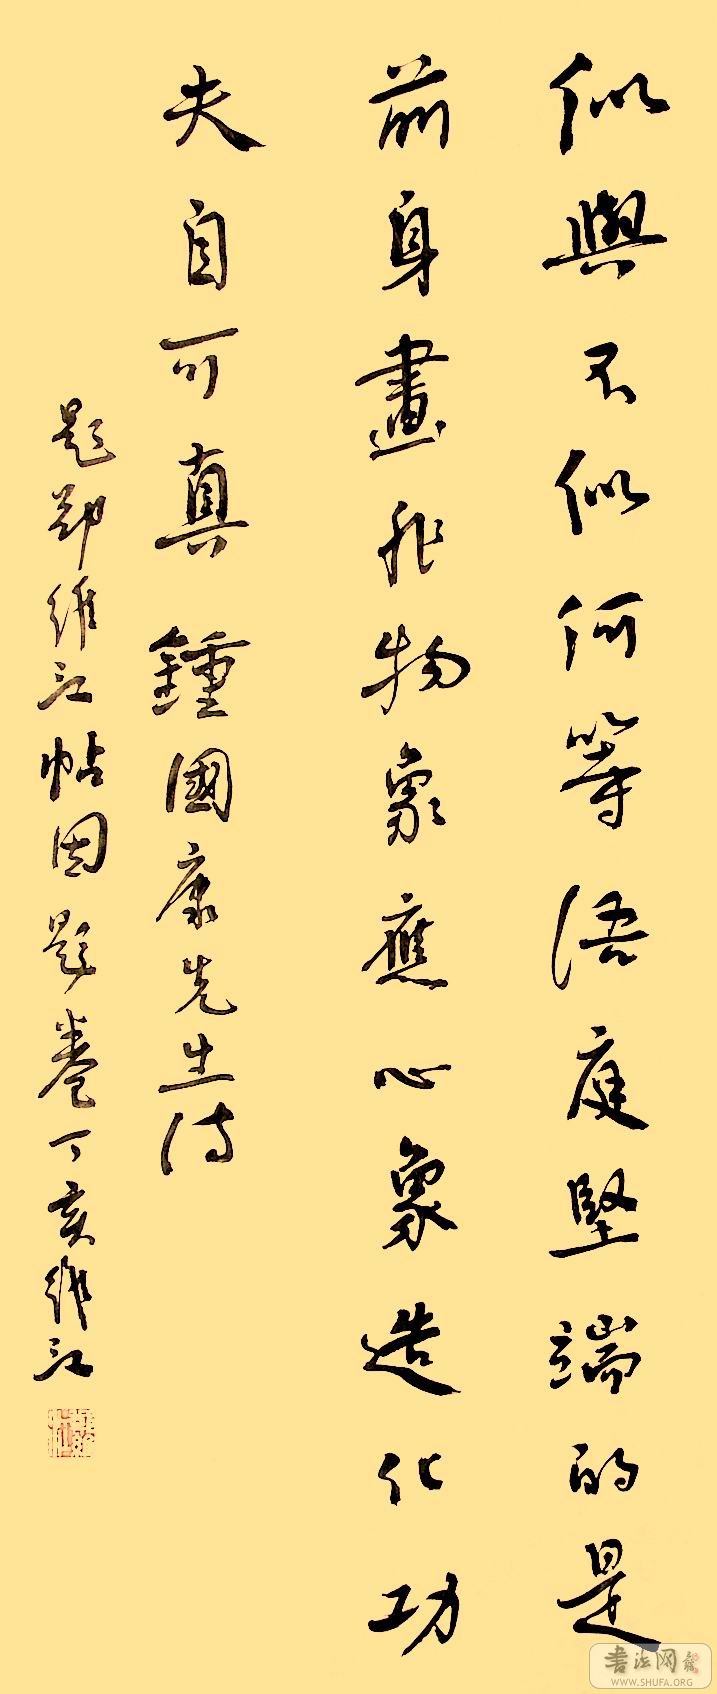 似與不似何等語庭堅端的是
前身畫非物象應心象造化功
夫自可真 鍾國康先生詩
題鄭維江帖因題卷丁亥維江
書法网
WWW.SHUFA.ORG